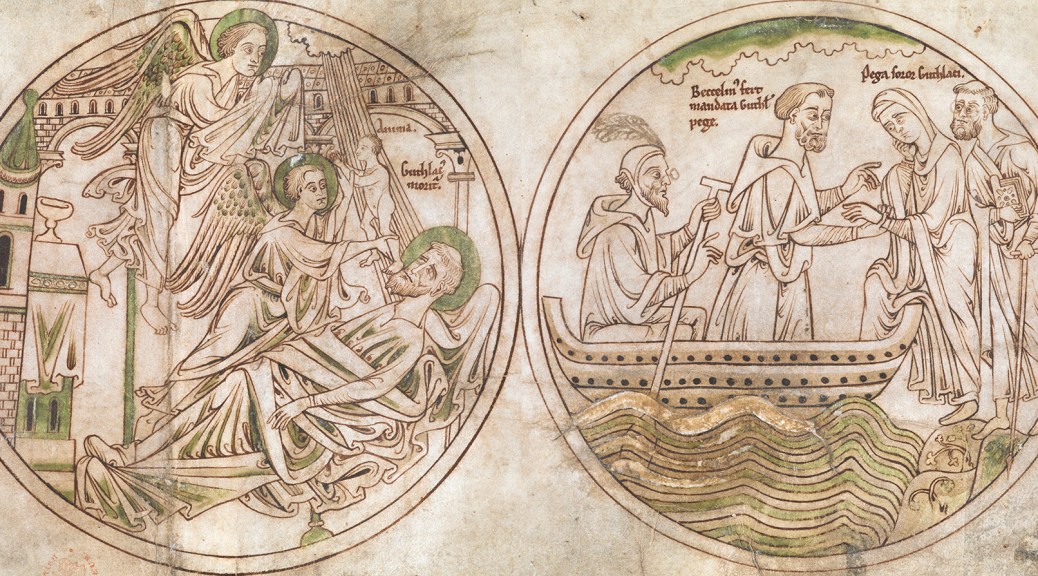 Anima.
Guthlacꝰ
morit᷑.
Beccelinꝰ fert
mandata Guthł
pege.
Pega soror Guthlaci.